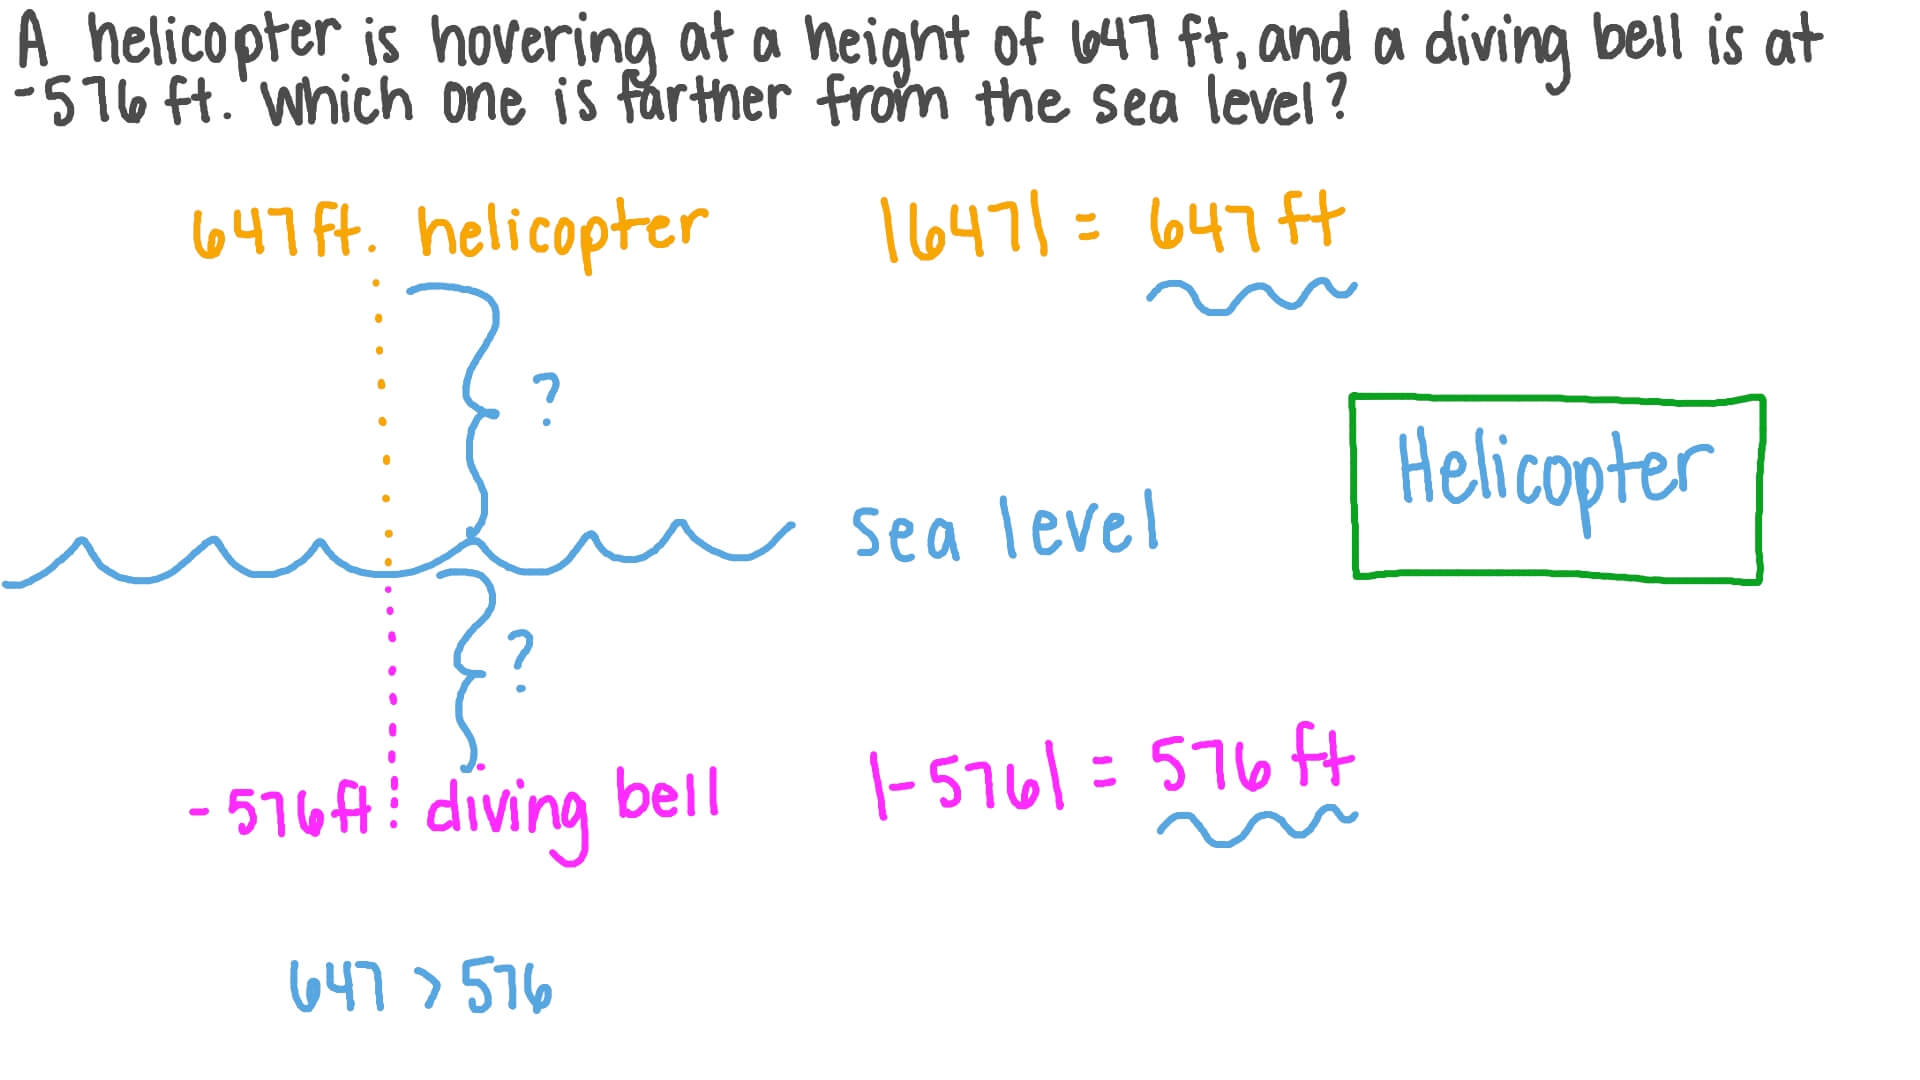 A helicopter is hovering at a height of 647 ft, and a diving bell is at
-576 ft. Which one is farther from the sea level?
647 ft. helicopter
|647| = 647 ft
?
Helicopter
sea level
?
-576 ft. diving bell
|-576| = 576 ft
647 > 576